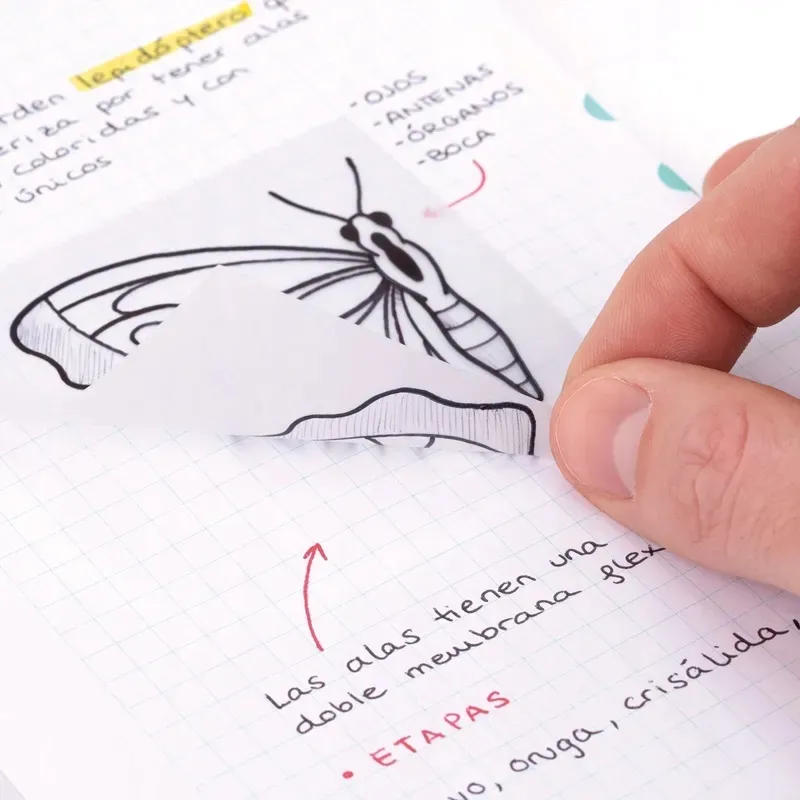 lepidóptero
por tener alas
coloridas y con
únicos
- OJOS
- ANTENAS
- ÓRGANOS
- BOCA
Las alas tienen una
doble membrana flex
• ETAPAS
oruga, crisálida,